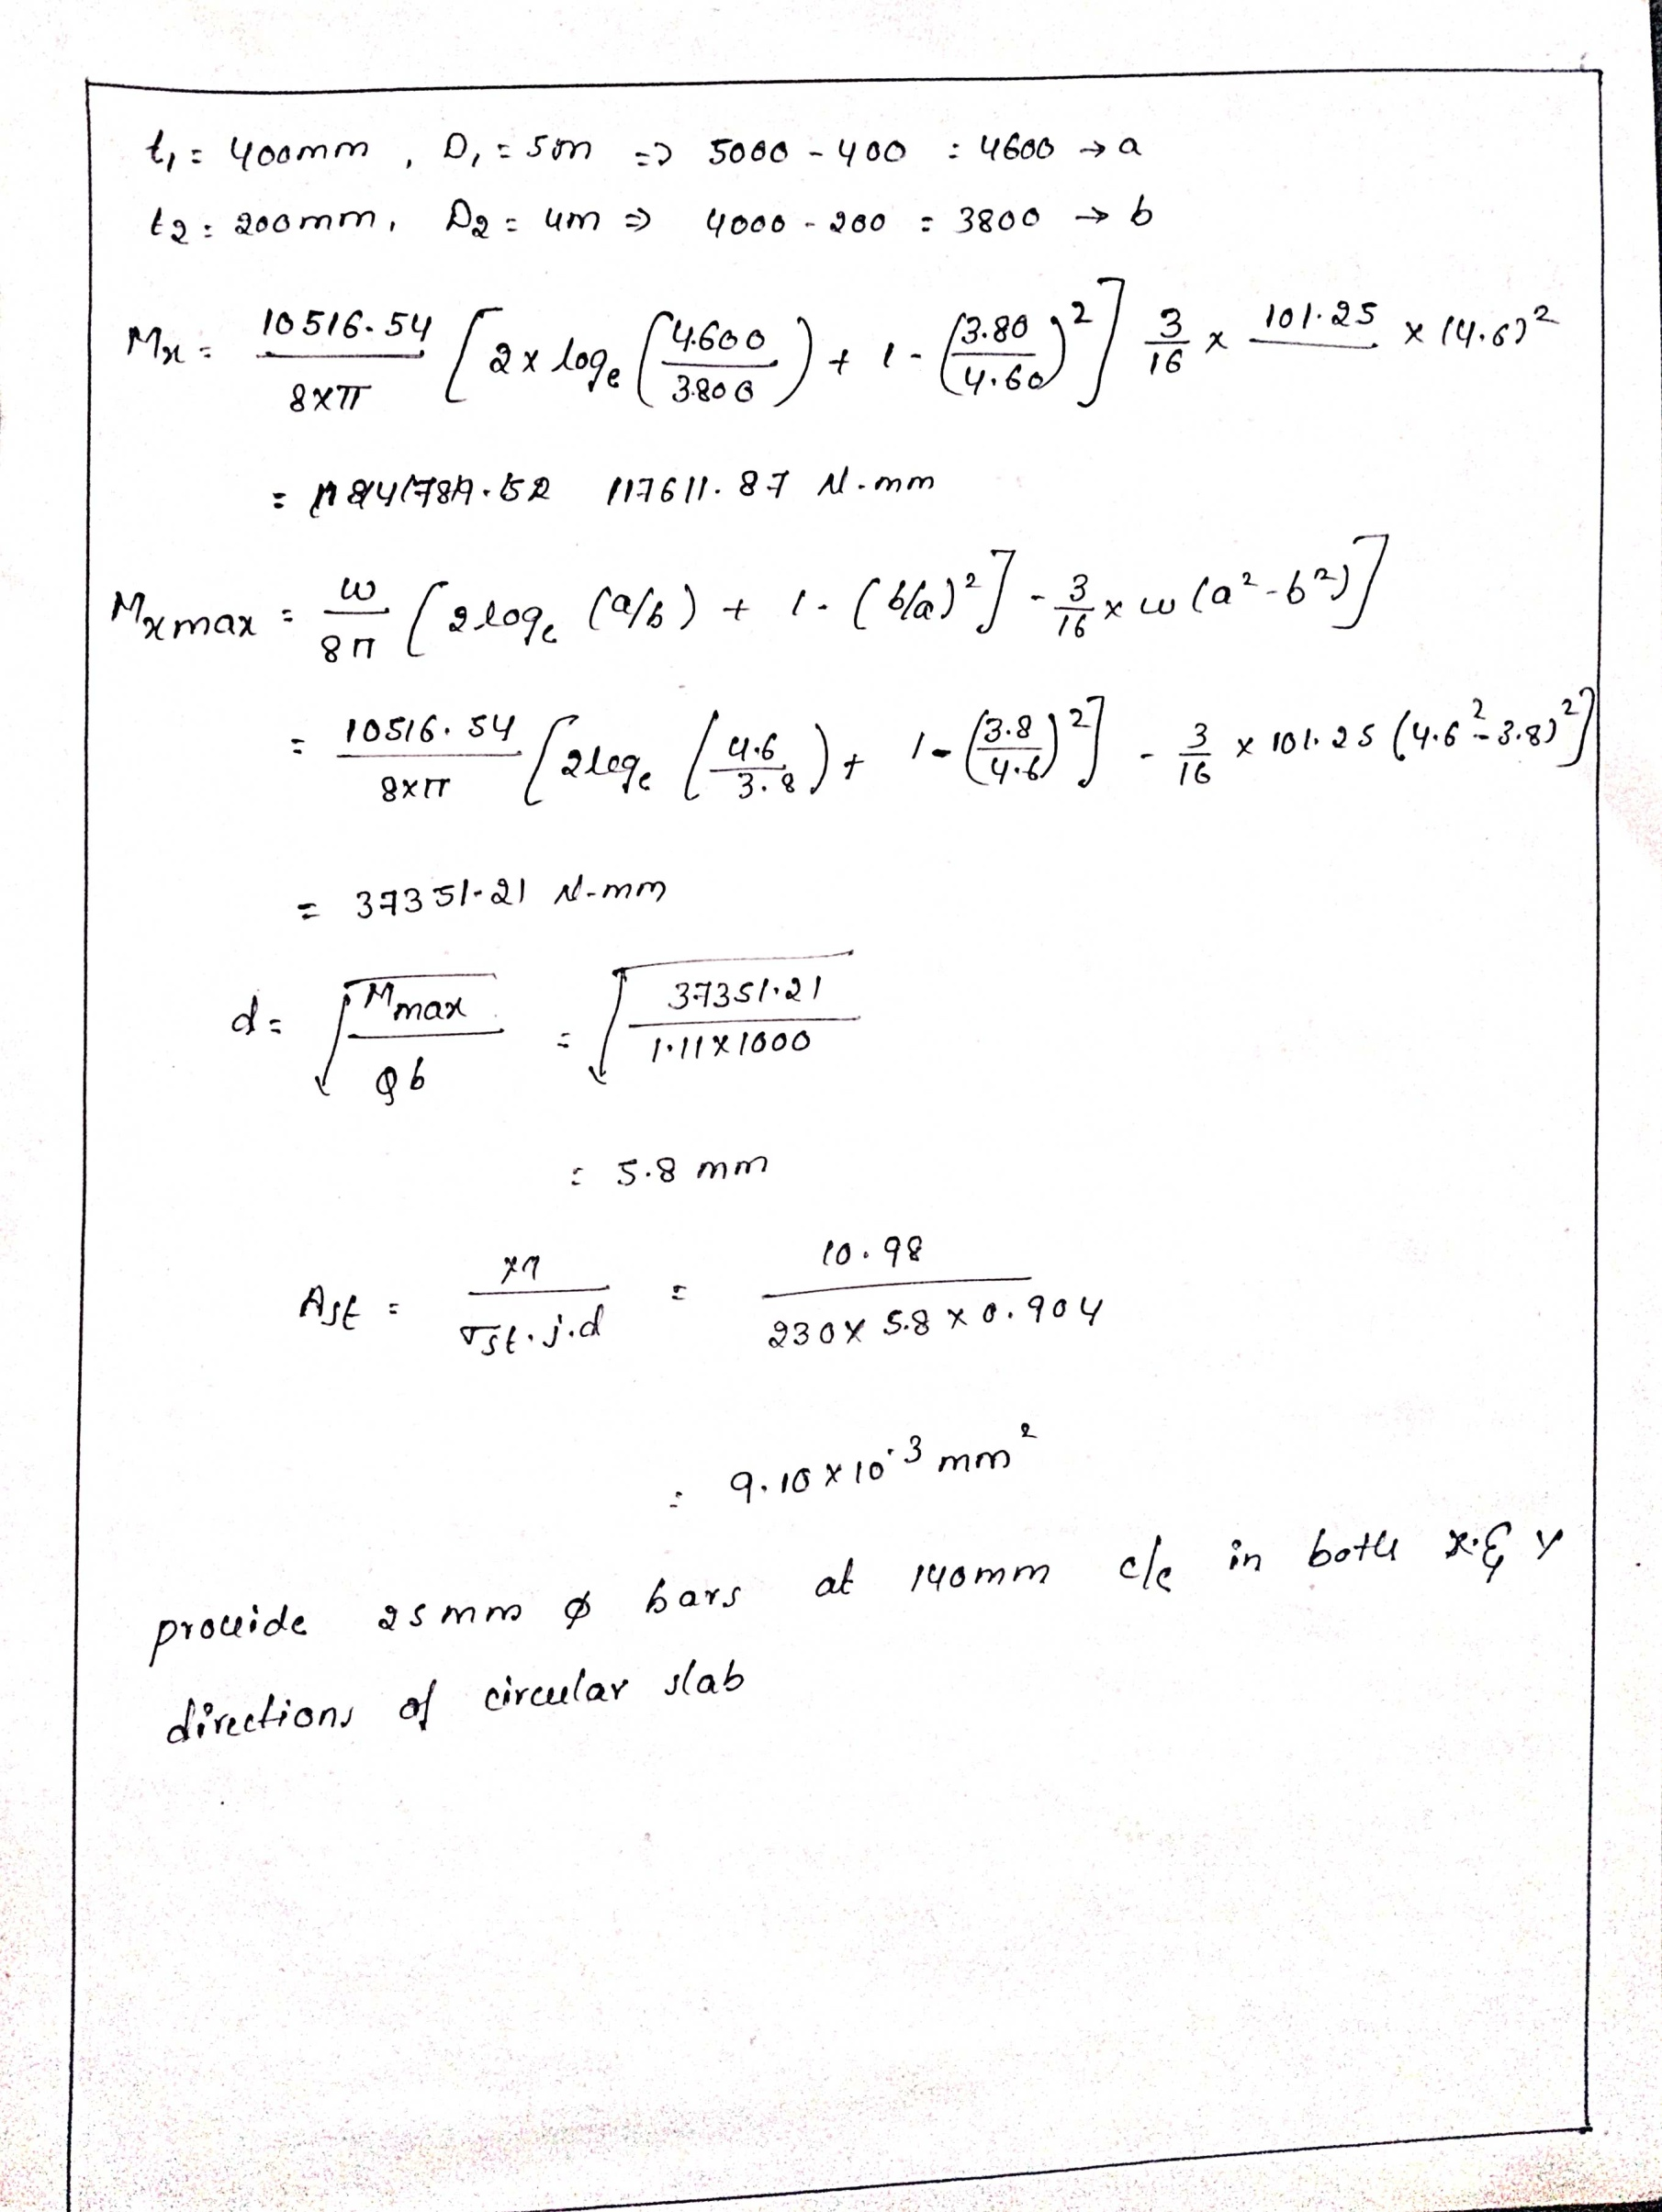 t1 = 400mm , D1 = 5m => 5000 - 400 = 4600 → a
t2 = 200mm, D2 = 4m => 4000 - 200 = 3800 → b
Mx = 10516.54 / 8×π [2 × loge (4.600 / 3.800) + 1 - (3.80 / 4.60)²] 3/16 × 101.25 × (4.6)²
= 117611.87 N-mm
Mxmax = w / 8π [2 loge (a/b) + 1 - (b/a)²] - 3/16 × w (a² - b²)]
= 10516.54 / 8×π [2 loge (4.6 / 3.8) + 1 - (3.8 / 4.6)²] - 3/16 × 101.25 (4.6² - 3.8)²]
= 37351.21 N-mm
d = √(Mmax / Qb) = √(37351.21 / 1.11×1000)
= 5.8 mm
Ast = / σst.j.d = 10.98 / 230 × 5.8 × 0.904
= 9.10 × 10⁻³ mm²
provide 25mm ϕ bars at 140mm c/c in both x & y
directions of circular slab